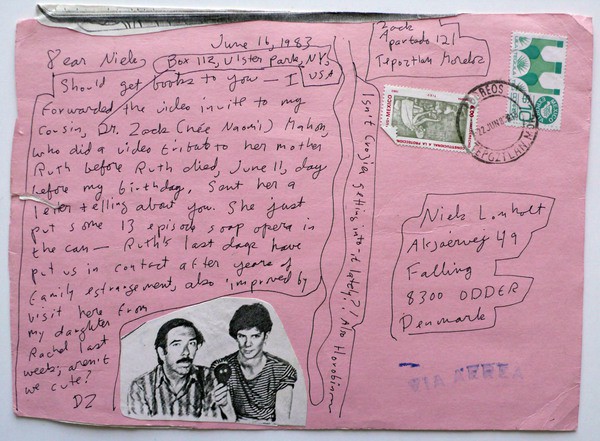 June 16, 1983
Dear Niels,
Box 112, Ulster Park, NY,
USA
Should get books to you — I
forwarded the video invite to my
cousin, Dr. Zack (née Naomi) Mahon,
who did a video tribut to her mother,
Ruth before Ruth died, June 11, day
before my birthday. Sent her a
letter telling about you. She just
put some 13 episode soap opera in
the can — Ruth's last days have
put us in contact after years of
family estrangement, also improved by
visit here from
my daughter
Rachel last
week; aren't
we cute?
DZ
Isn't Crozier getting into it lately?! Also Horobin
Zack
Apartado 121
Tepoztlan Morelos
MEXICO
CORREOS
22 JUN 83
TEPOZTLAN MOR.
Niels Lomholt
Falling
8300 ODDER
Denmark
VIA AEREA